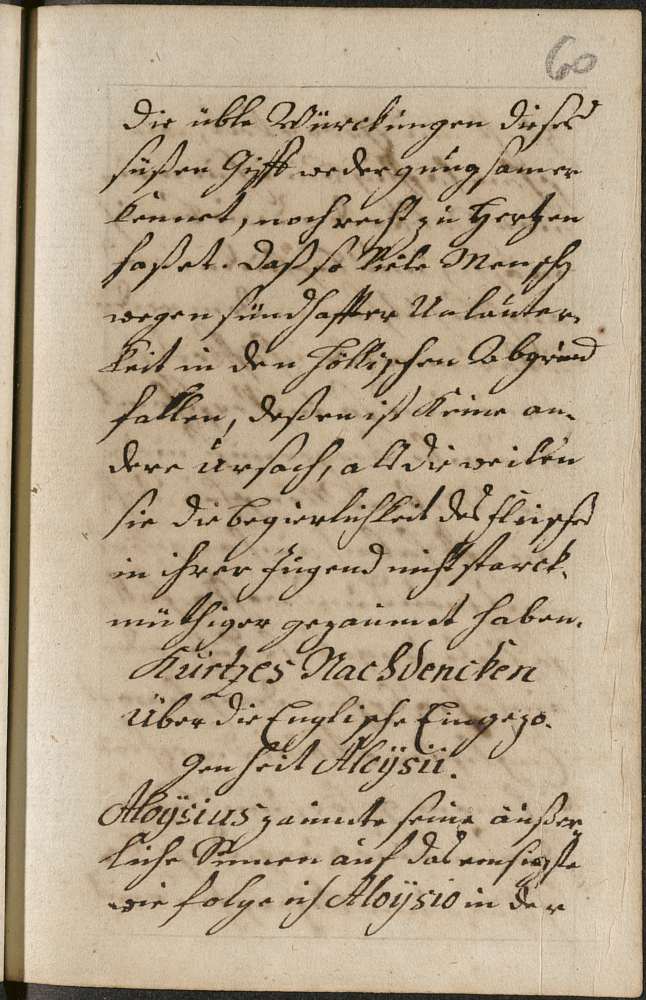 60
die üble Würckungen dieses
süßen Gifft weder gnugsam er
kennet, noch recht zu Hertzen
faßet. Daß so viele Mensch
wegen sündhaffter Unlauter-
keit in den höllischen Abgrund
fallen, deßen ist Keine an-
dere ursach, als dieweilen
sie die begierlichkeit des fleisches
in ihrer Jugend nicht starck-
müthiger gezaumet haben.
Kurtzes Nachdencken
Über die Englische Eingezo-
genheit Aloÿsii.
Aloÿsius zaumte seine äußer
liche Sinnen auf das
wie folge ich Aloÿsio in der